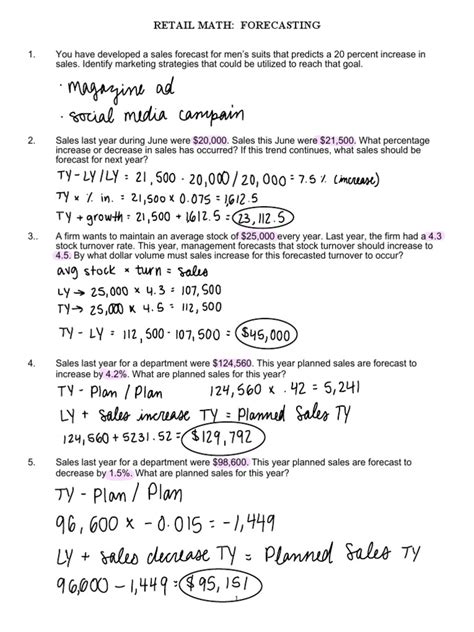 RETAIL MATH: FORECASTING
1. You have developed a sales forecast for men's suits that predicts a 20 percent increase in
sales. Identify marketing strategies that could be utilized to reach that goal.
· magazine ad
· social media campain
2. Sales last year during June were $20,000. Sales this June were $21,500. What percentage
increase or decrease in sales has occurred? If this trend continues, what sales should be
forecast for next year?
TY - LY / LY = 21,500 - 20,000 / 20,000 = 7.5 % (increase)
TY × % in. = 21,500 × 0.075 = 1,612.5
TY + growth = 21,500 + 1612.5 = 23,112.5
3.. A firm wants to maintain an average stock of $25,000 every year. Last year, the firm had a 4.3
stock turnover rate. This year, management forecasts that stock turnover should increase to
4.5. By what dollar volume must sales increase for this forecasted turnover to occur?
avg stock × turn = sales
LY → 25,000 × 4.3 = 107,500
TY → 25,000 × 4.5 = 112,500
TY - LY = 112,500 - 107,500 = $45,000
4. Sales last year for a department were $124,560. This year planned sales are forecast to
increase by 4.2%. What are planned sales for this year?
TY - Plan / Plan 124,560 × .42 = 5,241
LY + Sales increase TY = Planned Sales TY
124,560 + 5231.52 = $129,792
5. Sales last year for a department were $98,600. This year planned sales are forecast to
decrease by 1.5%. What are planned sales for this year?
TY - Plan / Plan
96,600 × -0.015 = -1,449
LY + sales decrease TY = Planned Sales TY
96,000 - 1,449 = $95,151